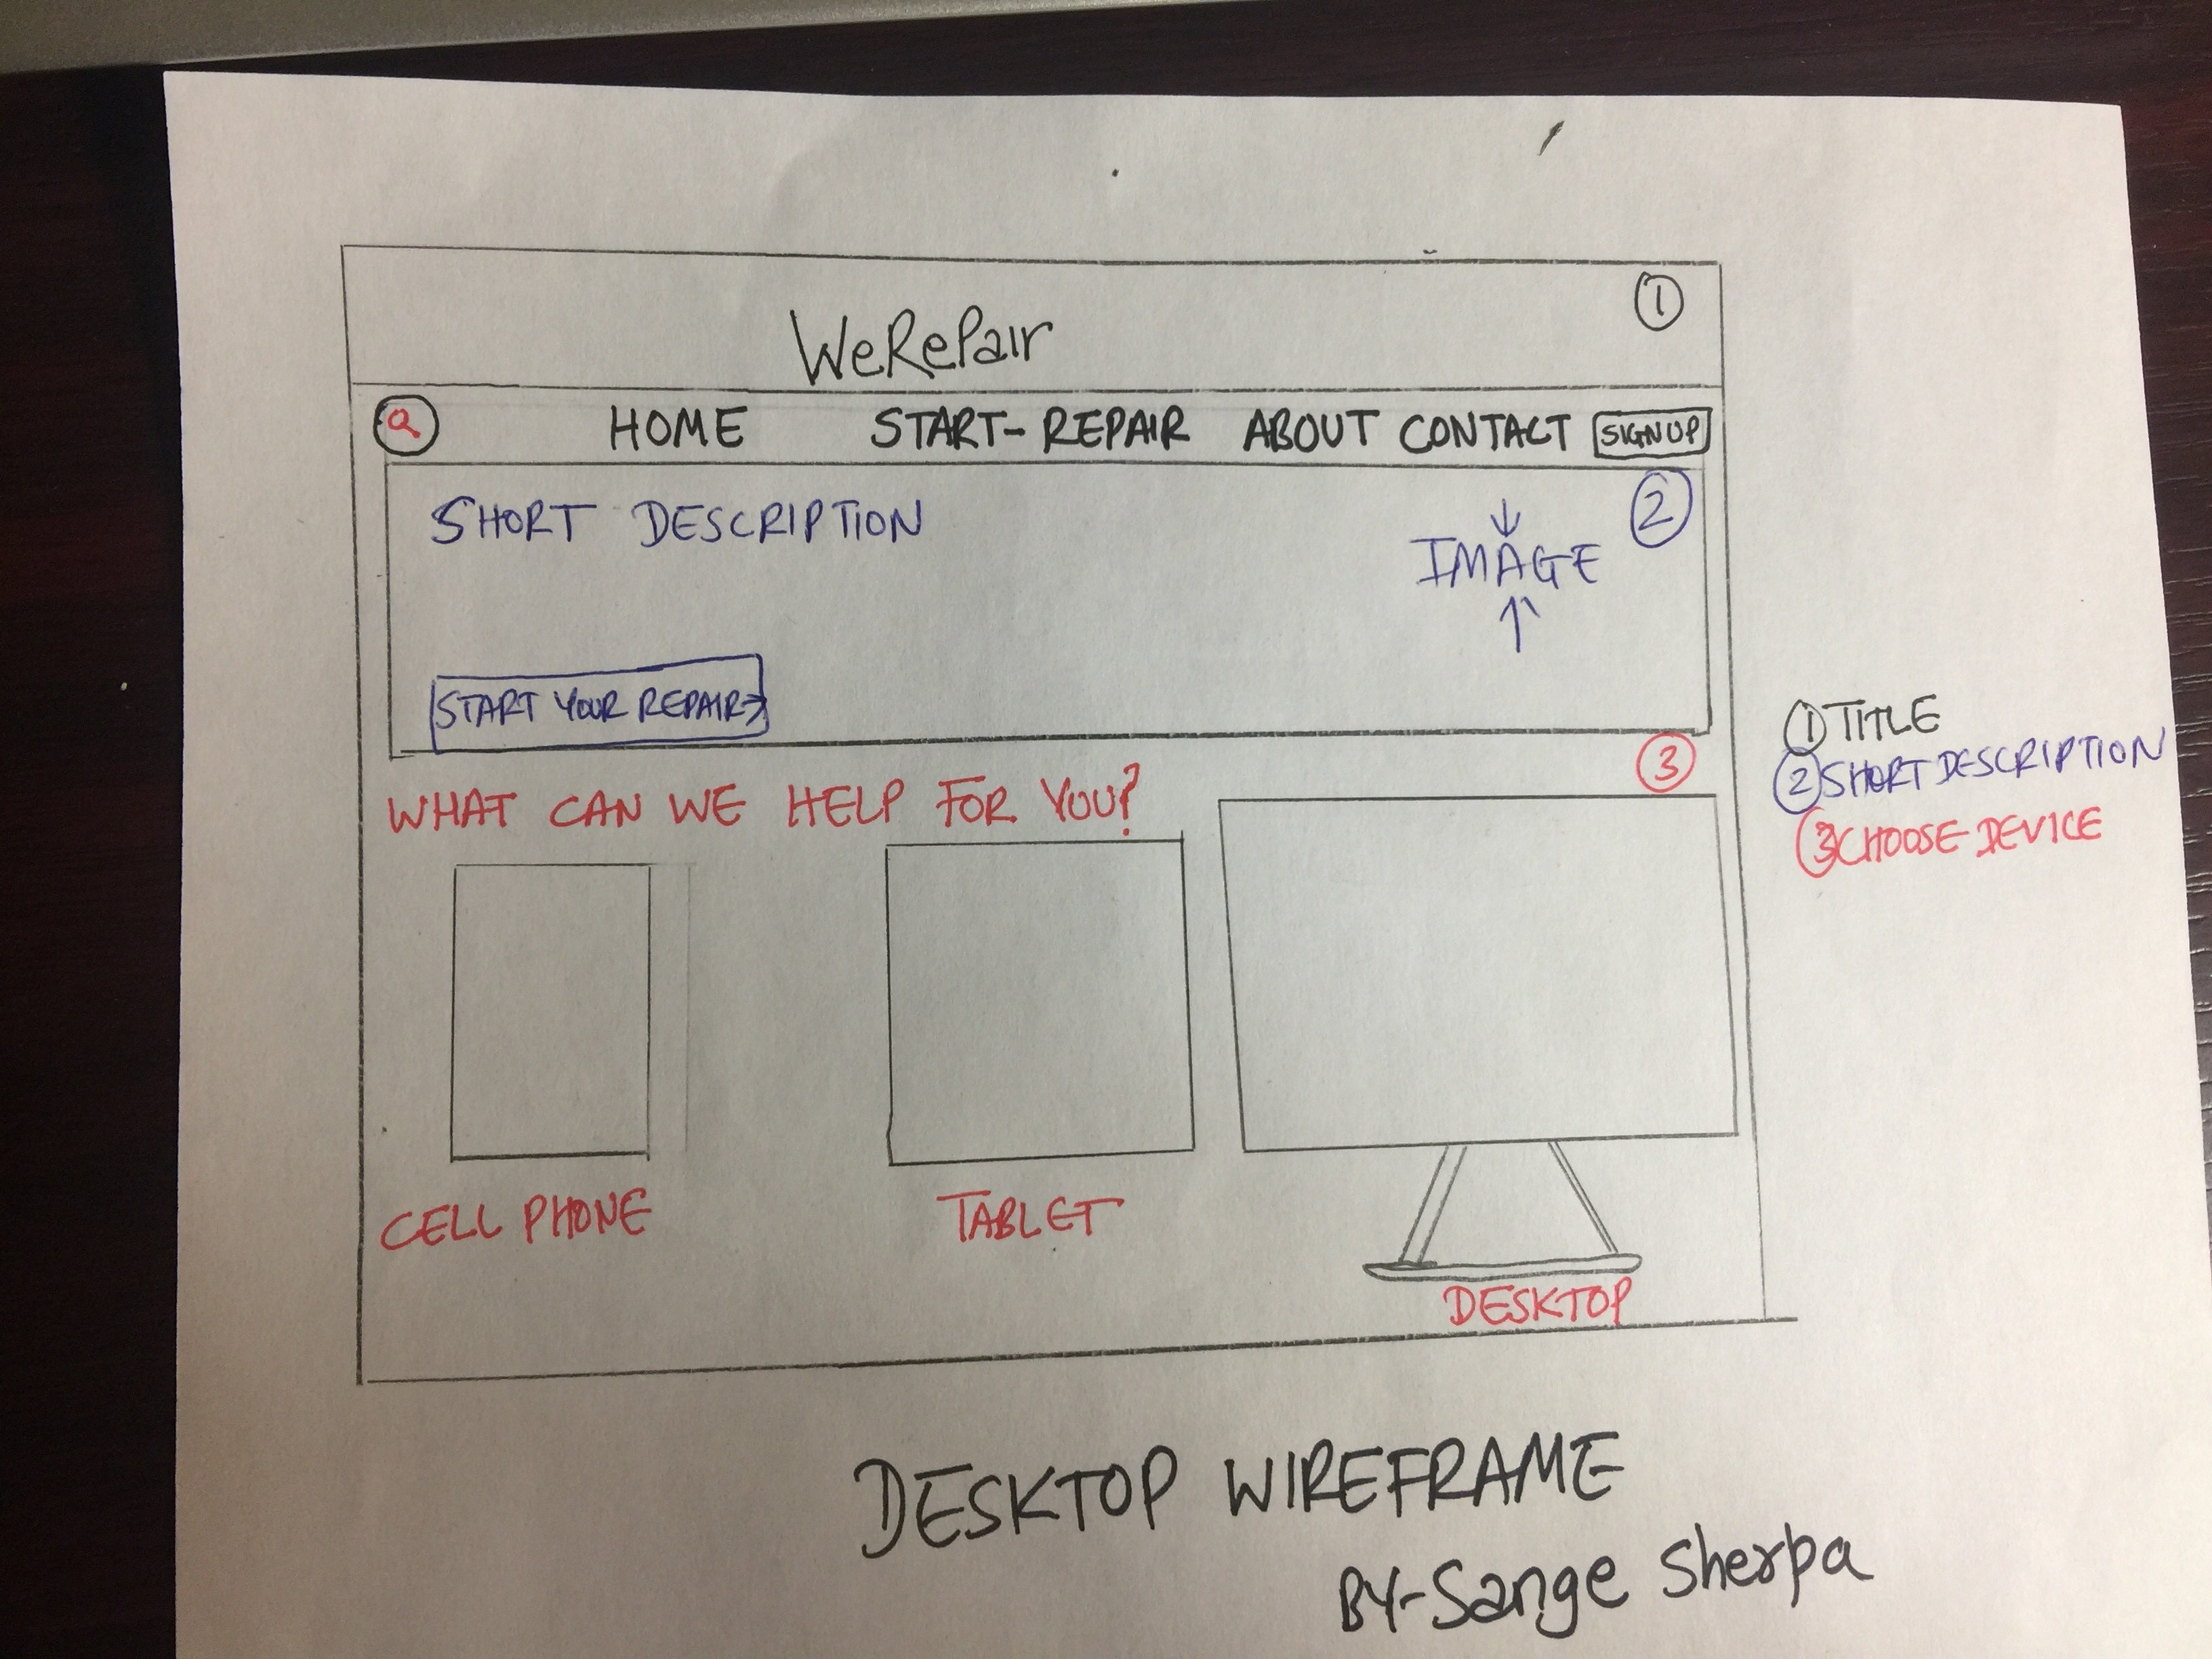 1
WeRePair
Q HOME START-REPAIR ABOUT CONTACT SIGNUP
2
SHORT DESCRIPTION
IMAGE
START YOUR REPAIR→
3
WHAT CAN WE HELP FOR YOU?
CELL PHONE
TABLET
DESKTOP
1 TITLE
2 SHORT DESCRIPTION
3 CHOOSE DEVICE
DESKTOP WIREFRAME
BY-Sange Sherpa